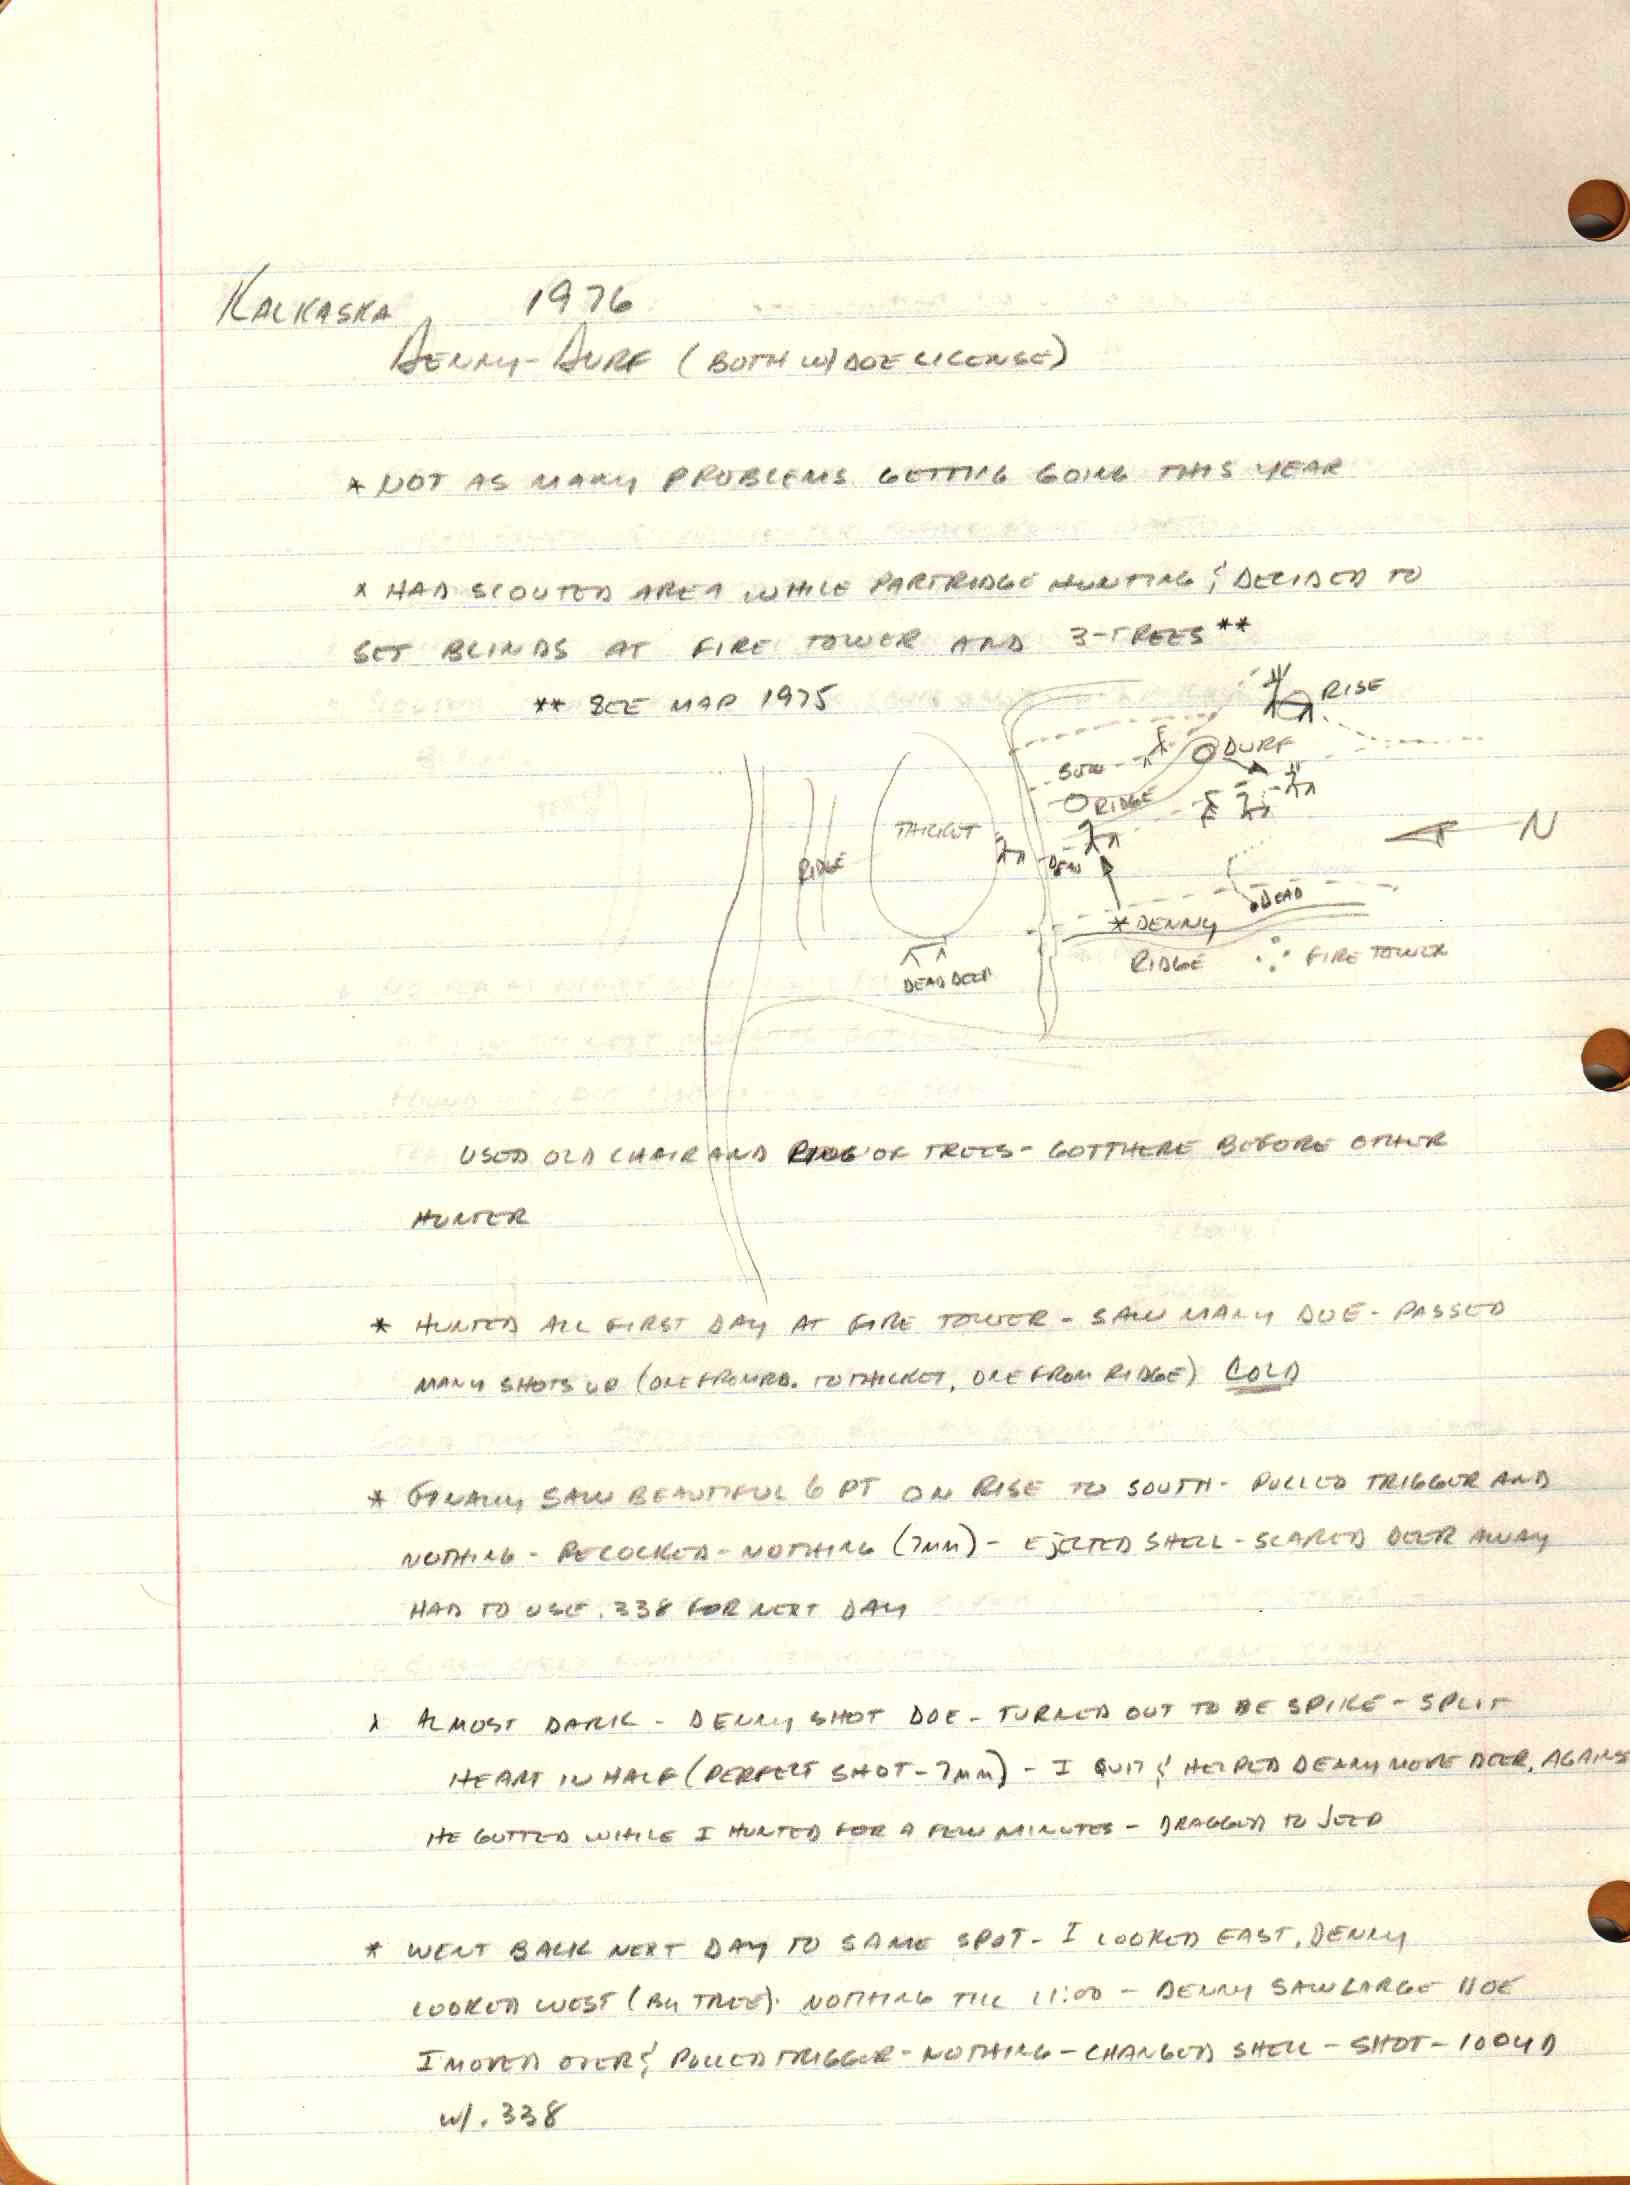 KALKASKA 1976
DENNY - DURF (BOTH W/ DOE LICENSE)
* NOT AS MANY PROBLEMS GETTING GOING THIS YEAR
* HAD SCOUTED AREA WHILE PARTRIDGE HUNTING & DECIDED TO
SET BLINDS AT FIRE TOWER AND 3-TREES **
** SEE MAP 1975
RISE
DURF
RIDGE
THICKET
RIDGE
N
DEAD
* DENNY
RIDGE
FIRE TOWER
DEAD DEER
USED OLD CHAIR AND OF TREES - GOT THERE BEFORE OTHER
HUNTER
* HUNTED ALL FIRST DAY AT FIRE TOWER - SAW MANY DOE - PASSED
MANY SHOTS UP (ONE FROM RD. TO THICKET, ONE FROM RIDGE) COLD
* FINALLY SAW BEAUTIFUL 6 PT ON RISE TO SOUTH - PULLED TRIGGER AND
NOTHING - RECOCKED - NOTHING (7MM) - EJECTED SHELL - SCARED DEER AWAY
HAD TO USE .338 FOR NEXT DAY
* ALMOST DARK - DENNY SHOT DOE - TURNED OUT TO BE SPIKE - SPLIT
HEART IN HALF (PERFECT SHOT - 7MM) - I QUIT & HELPED DENNY MOVE DEER, AGAINST
HE GUTTED WHILE I HUNTED FOR A FEW MINUTES - DRAGGED TO JEEP
* WENT BACK NEXT DAY TO SAME SPOT - I LOOKED EAST, DENNY
LOOKED WEST (BY TREE). NOTHING TILL 11:00 - DENNY SAW LARGE DOE
I MOVED OVER & PULLED TRIGGER - NOTHING - CHANGED SHELL - SHOT - 100YD
W/ .338